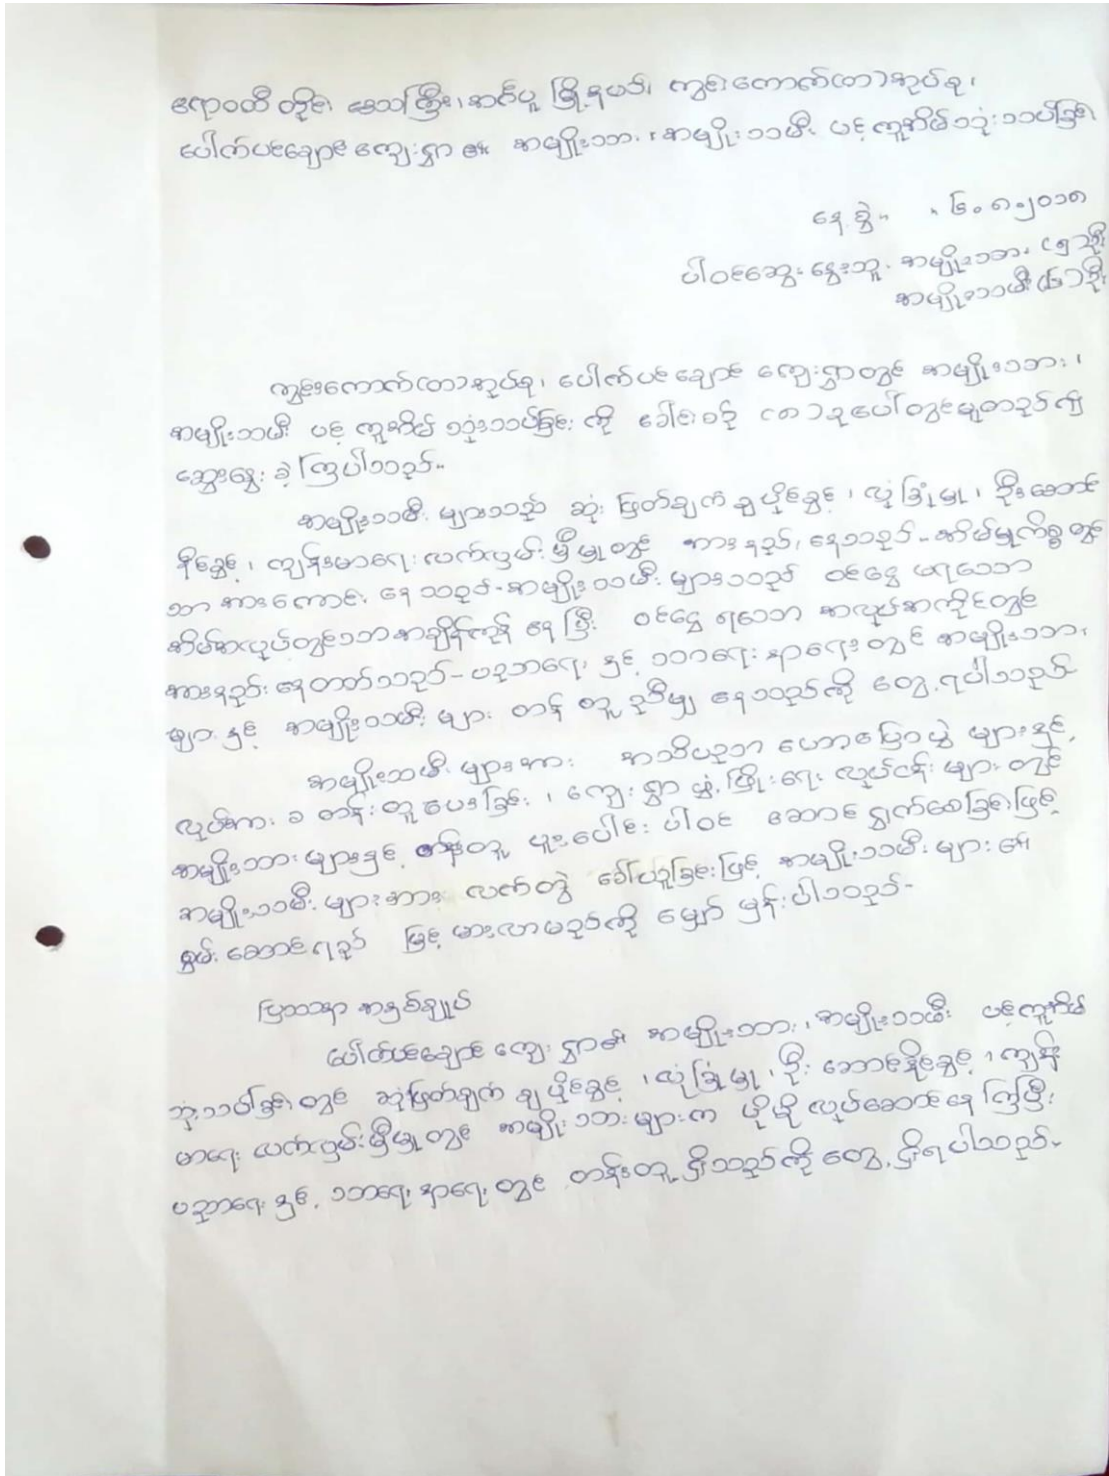 ဧရာဝတီ တိုင်း ဒေသကြီး၊ အင်္ဂပူ မြို့နယ်၊ ကွင်းကောက်(တာ)အုပ်စု၊
ပေါက်ပင်ချောင် ကျေးရွာ ၏ အမျိုးသား၊ အမျိုးသမီး ပင့်ကူအိမ် သုံးသပ်ခြင်း
နေ့စွဲ။ ၆.၈.၂၀၁၈
ပါဝင်ဆွေးနွေးသူ. အမျိုးသား (၅)ဦး
အမျိုးသမီး (၆)ဦး
ကွင်းကောက်(တာ)အုပ်စု၊ ပေါက်ပင်ချောင် ကျေးရွာတွင် အမျိုးသား၊
အမျိုးသမီး ပင့်ကူအိမ် သုံးသပ်ခြင်း ကို ခေါင်းစဉ် (၈)ခုပေါ်တွင်မူတည်၍
ဆွေးနွေး ခဲ့ကြပါသည်။
အမျိုးသမီး များသည် ဆုံးဖြတ်ချက် ချပိုင်ခွင့်၊ လုံခြုံမှု၊ ဦးဆောင်
နိုင်ခွင့်၊ ကျန်းမာရေး လက်လှမ်းမှီမှုတွင် အားနည်း နေသည်- အိမ်မှုကိစ္စတွင်
သာ အားကောင်း နေသည်- အမျိုးသမီး များသည် ဝင်ငွေ မရသော
အိမ်အလုပ်တွင်သာ အချိန်ကုန် နေပြီး ဝင်ငွေ ရသော အလုပ်အကိုင်တွင်
အားနည်း နေတတ်သည်- ပညာရေး နှင့် သာရေးနာရေး တွင် အမျိုးသား
များ နှင့် အမျိုးသမီး များ တန်းတူ ညီမျှ နေသည်ကို တွေ့ရပါသည်-
အမျိုးသမီး များအား အသိပညာ ဟောပြောပွဲ များနှင့်
လုပ်အားခ တန်းတူပေးခြင်း၊ ကျေးရွာ ဖွံ့ဖြိုးရေး လုပ်ငန်း များ တွင်
အမျိုးသား များနှင့် တန်းတူ ပူးပေါင်း ပါဝင် ဆောင်ရွက်စေခြင်းဖြင့်
အမျိုးသမီး များအား လက်တွဲ ခေါ်ယူခြင်းဖြင့် အမျိုးသမီး များ၏
စွမ်းဆောင်ရည် မြင့်မားလာမည်ကို မျှော်မှန်းပါသည်-
ပြဿနာ အနှစ်ချုပ်
ပေါက်ပင်ချောင် ကျေးရွာ၏ အမျိုးသား၊ အမျိုးသမီး ပင့်ကူအိမ်
သုံးသပ်ခြင်းတွင် ဆုံးဖြတ်ချက် ချပိုင်ခွင့်၊ လုံခြုံမှု၊ ဦးဆောင်နိုင်ခွင့်၊ ကျန်း
မာရေး လက်လှမ်းမှီမှုတွင် အမျိုးသား များက ပိုမို လုပ်ဆောင်နေကြပြီး
ပညာရေး နှင့် သာရေးနာရေး တွင် တန်းတူ ရှိသည်ကို တွေ့ရှိရပါသည်-